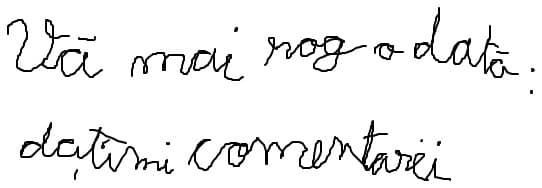 Vă mai rog o dată:
dațimi comentarei